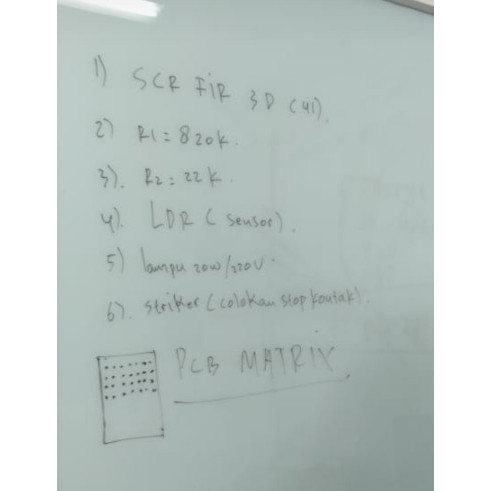 1) SCR FIR 3D (U1).
2) R1 = 820K.
3). R2 = 22K.
4). LDR (sensor).
5) lampu 20W/220V.
6). steriker (colokan stop kontak).
PCB MATRIX